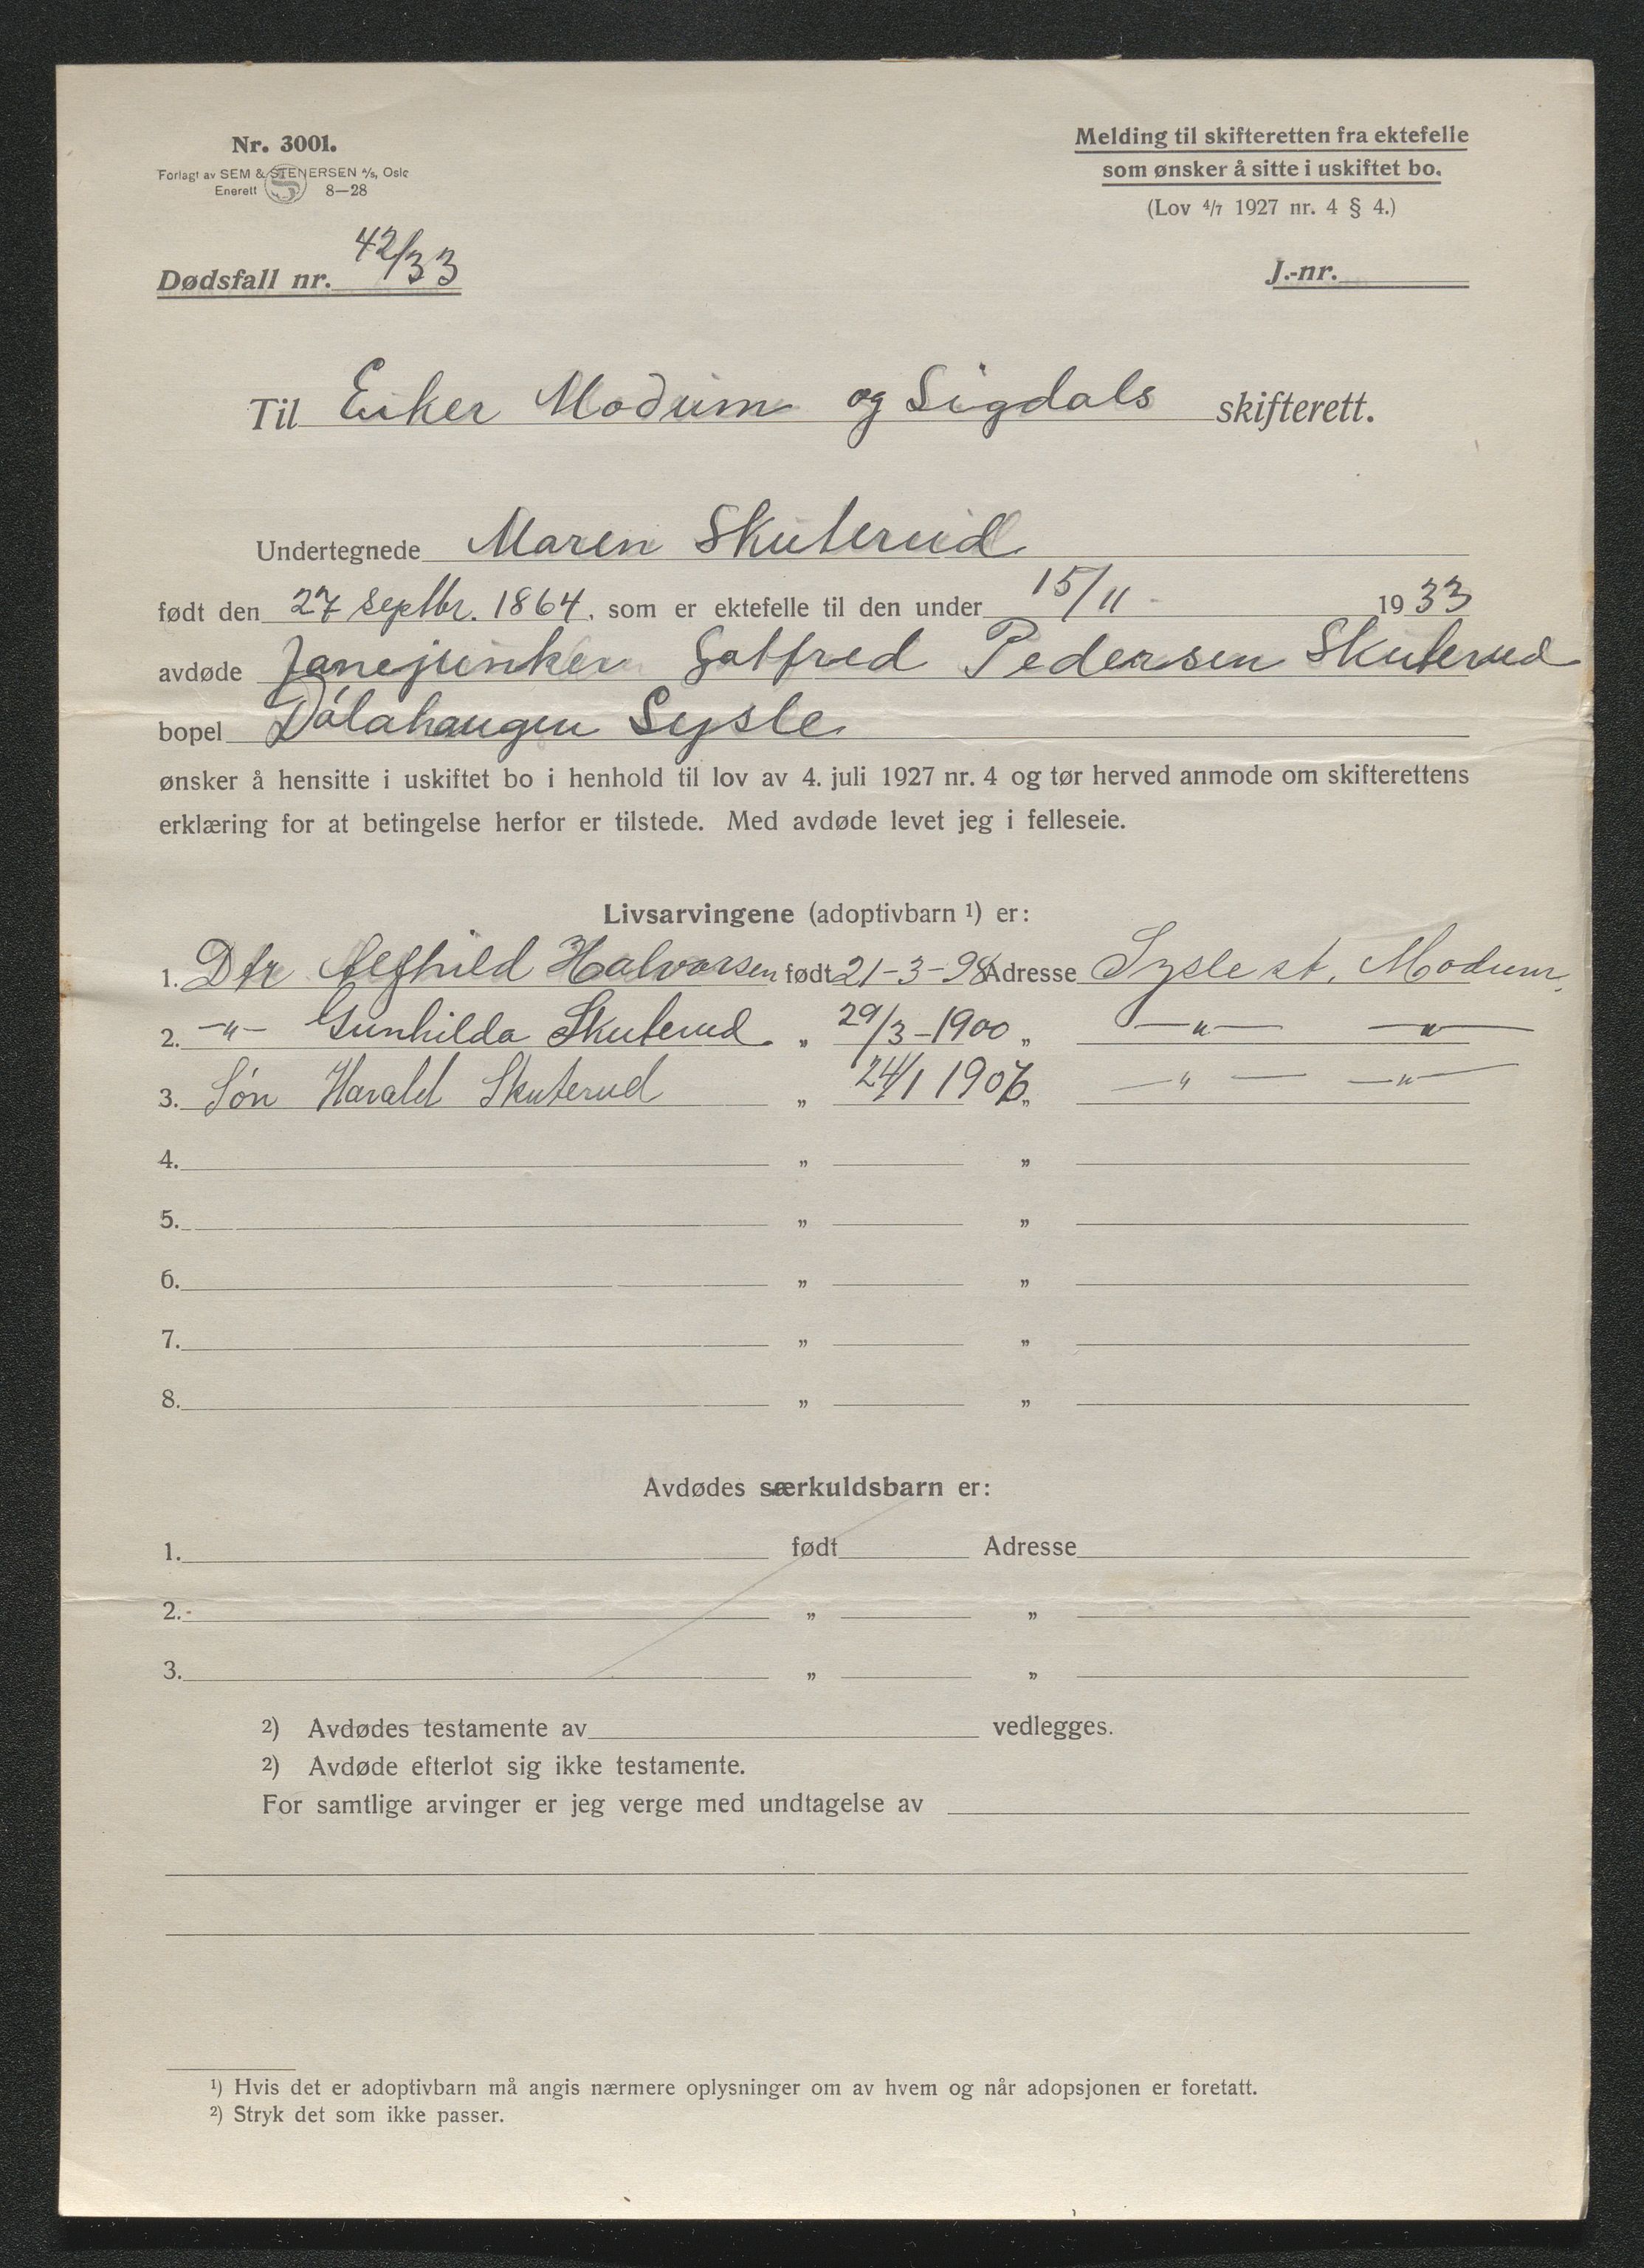 Nr. 3001.
Forlagt av SEM & STENERSEN A/S, Oslo
Enerett 8—28
Melding til skifteretten fra ektefelle
som ønsker å sitte i uskiftet bo.
(Lov 4/7 1927 nr. 4 § 4.)
Dødsfall nr. 42/33
J.-nr.
Til Eiker Modum og Sigdals skifterett.
Undertegnede Maren Skuterud
født den 27 Septbr. 1864, som er ektefelle til den under 15/11 - 1933
avdøde Gotfred Pedersen Skuterud
bopel Dålahaugen Sysle
ønsker å hensitte i uskiftet bo i henhold til lov av 4. juli 1927 nr. 4 og tør herved anmode om skifterettens
erklæring for at betingelse herfor er tilstede. Med avdøde levet jeg i felleseie.
Livsarvingene (adoptivbarn 1) er:
1. Dtr Alfhild Halvorsen født 21-3-98 Adresse Sysle st. Modum.
2. —"— Gunhilda Skuterud „ 29/3-1900 „ —"— —"—
3. Søn Harald Skuterud „ 24/1 1906 „ —"— —"—
4. „ „
5. „ „
6. „ „
7. „ „
8. „ „
Avdødes særkuldsbarn er:
1. født Adresse
2. „ „
3. „ „
2) Avdødes testamente av vedlegges.
2) Avdøde efterlot sig ikke testamente.
For samtlige arvinger er jeg verge med undtagelse av
1) Hvis det er adoptivbarn må angis nærmere oplysninger om av hvem og når adopsjonen er foretatt.
2) Stryk det som ikke passer.